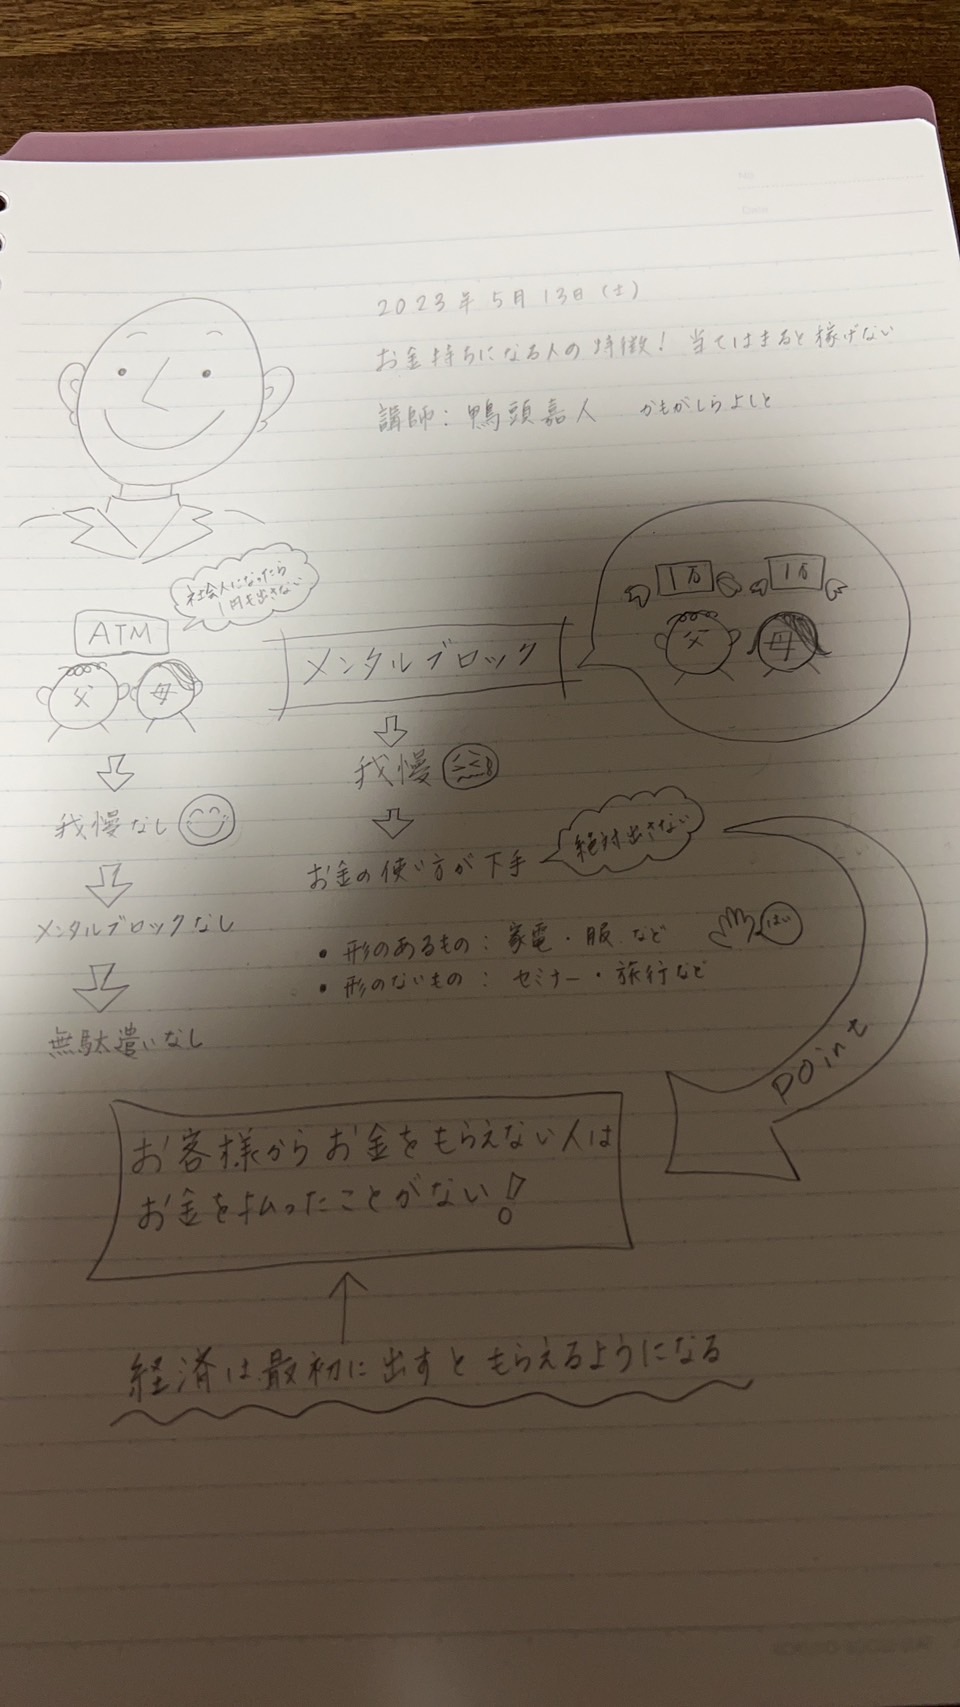 2023年5月13日(土)
お金持ちになる人の特徴! 当てはまると稼げない
講師: 鴨頭嘉人 かもがしらよしと
社会人になったら
1円も出さない
ATM
父 母
我慢なし
メンタルブロックなし
無駄遣いなし
メンタルブロック
1万 1万
父 母
我慢
お金の使い方が下手
絶対出さない
• 形のあるもの: 家電・服 など
• 形のないもの: セミナー・旅行など
はい
point
お客様からお金をもらえない人は
お金を払ったことがない!
経済は最初に出すともらえるようになる